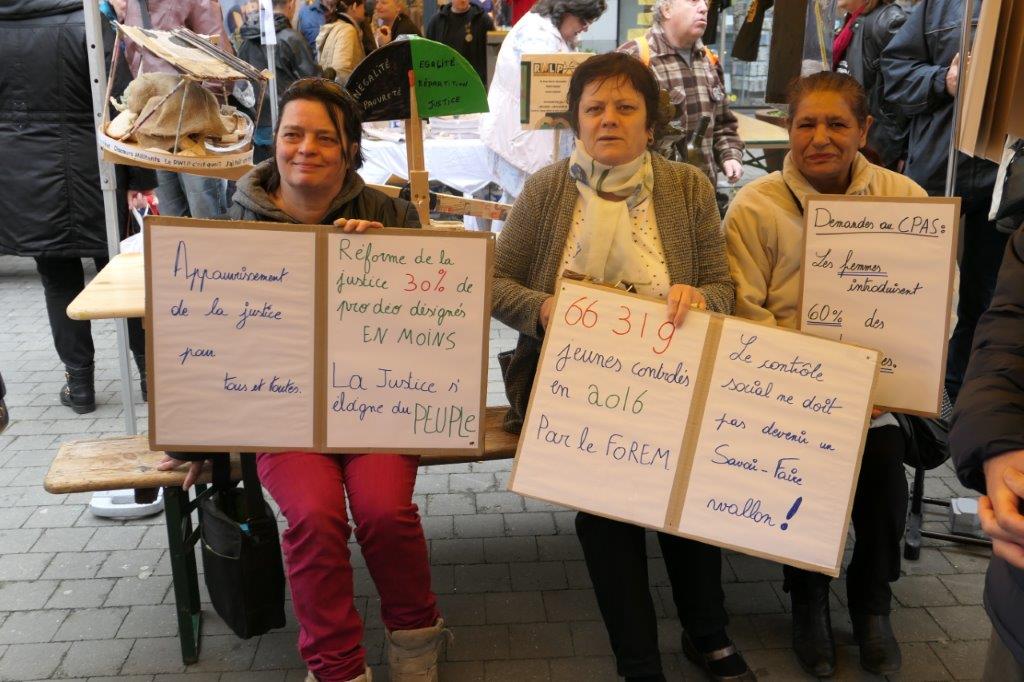 INEGALITÉ
PAUVRETÉ
EGALITÉ
RÉPARTITION
JUSTICE
Appauvrissement
de la justice
pour
tous et toutes.
Réforme de la
justice 30% de
pro déo désignés
EN MOINS
La Justice s'
éloigne du PEUPLE
66 319
jeunes contrôlés
en 2016
Par le FOREM
Le contrôle
social ne doit
pas devenir un
Savoir-Faire
wallon!
Demandes au CPAS:
Les femmes
introduisent
60% des